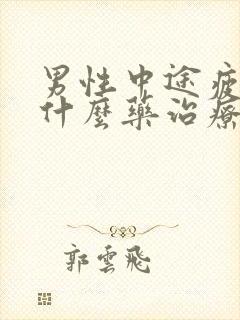 男性中途疲
什麼藥治療
郭雲飛